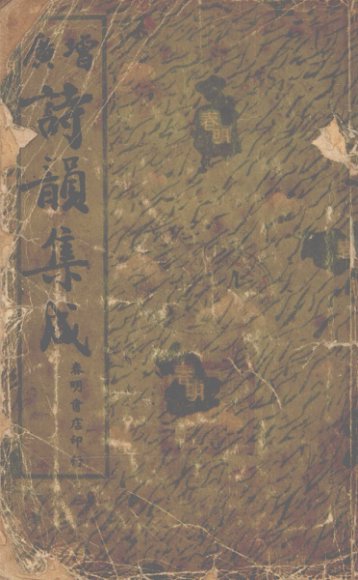 增廣
詩韻集成
春明書店印行
春明
春明